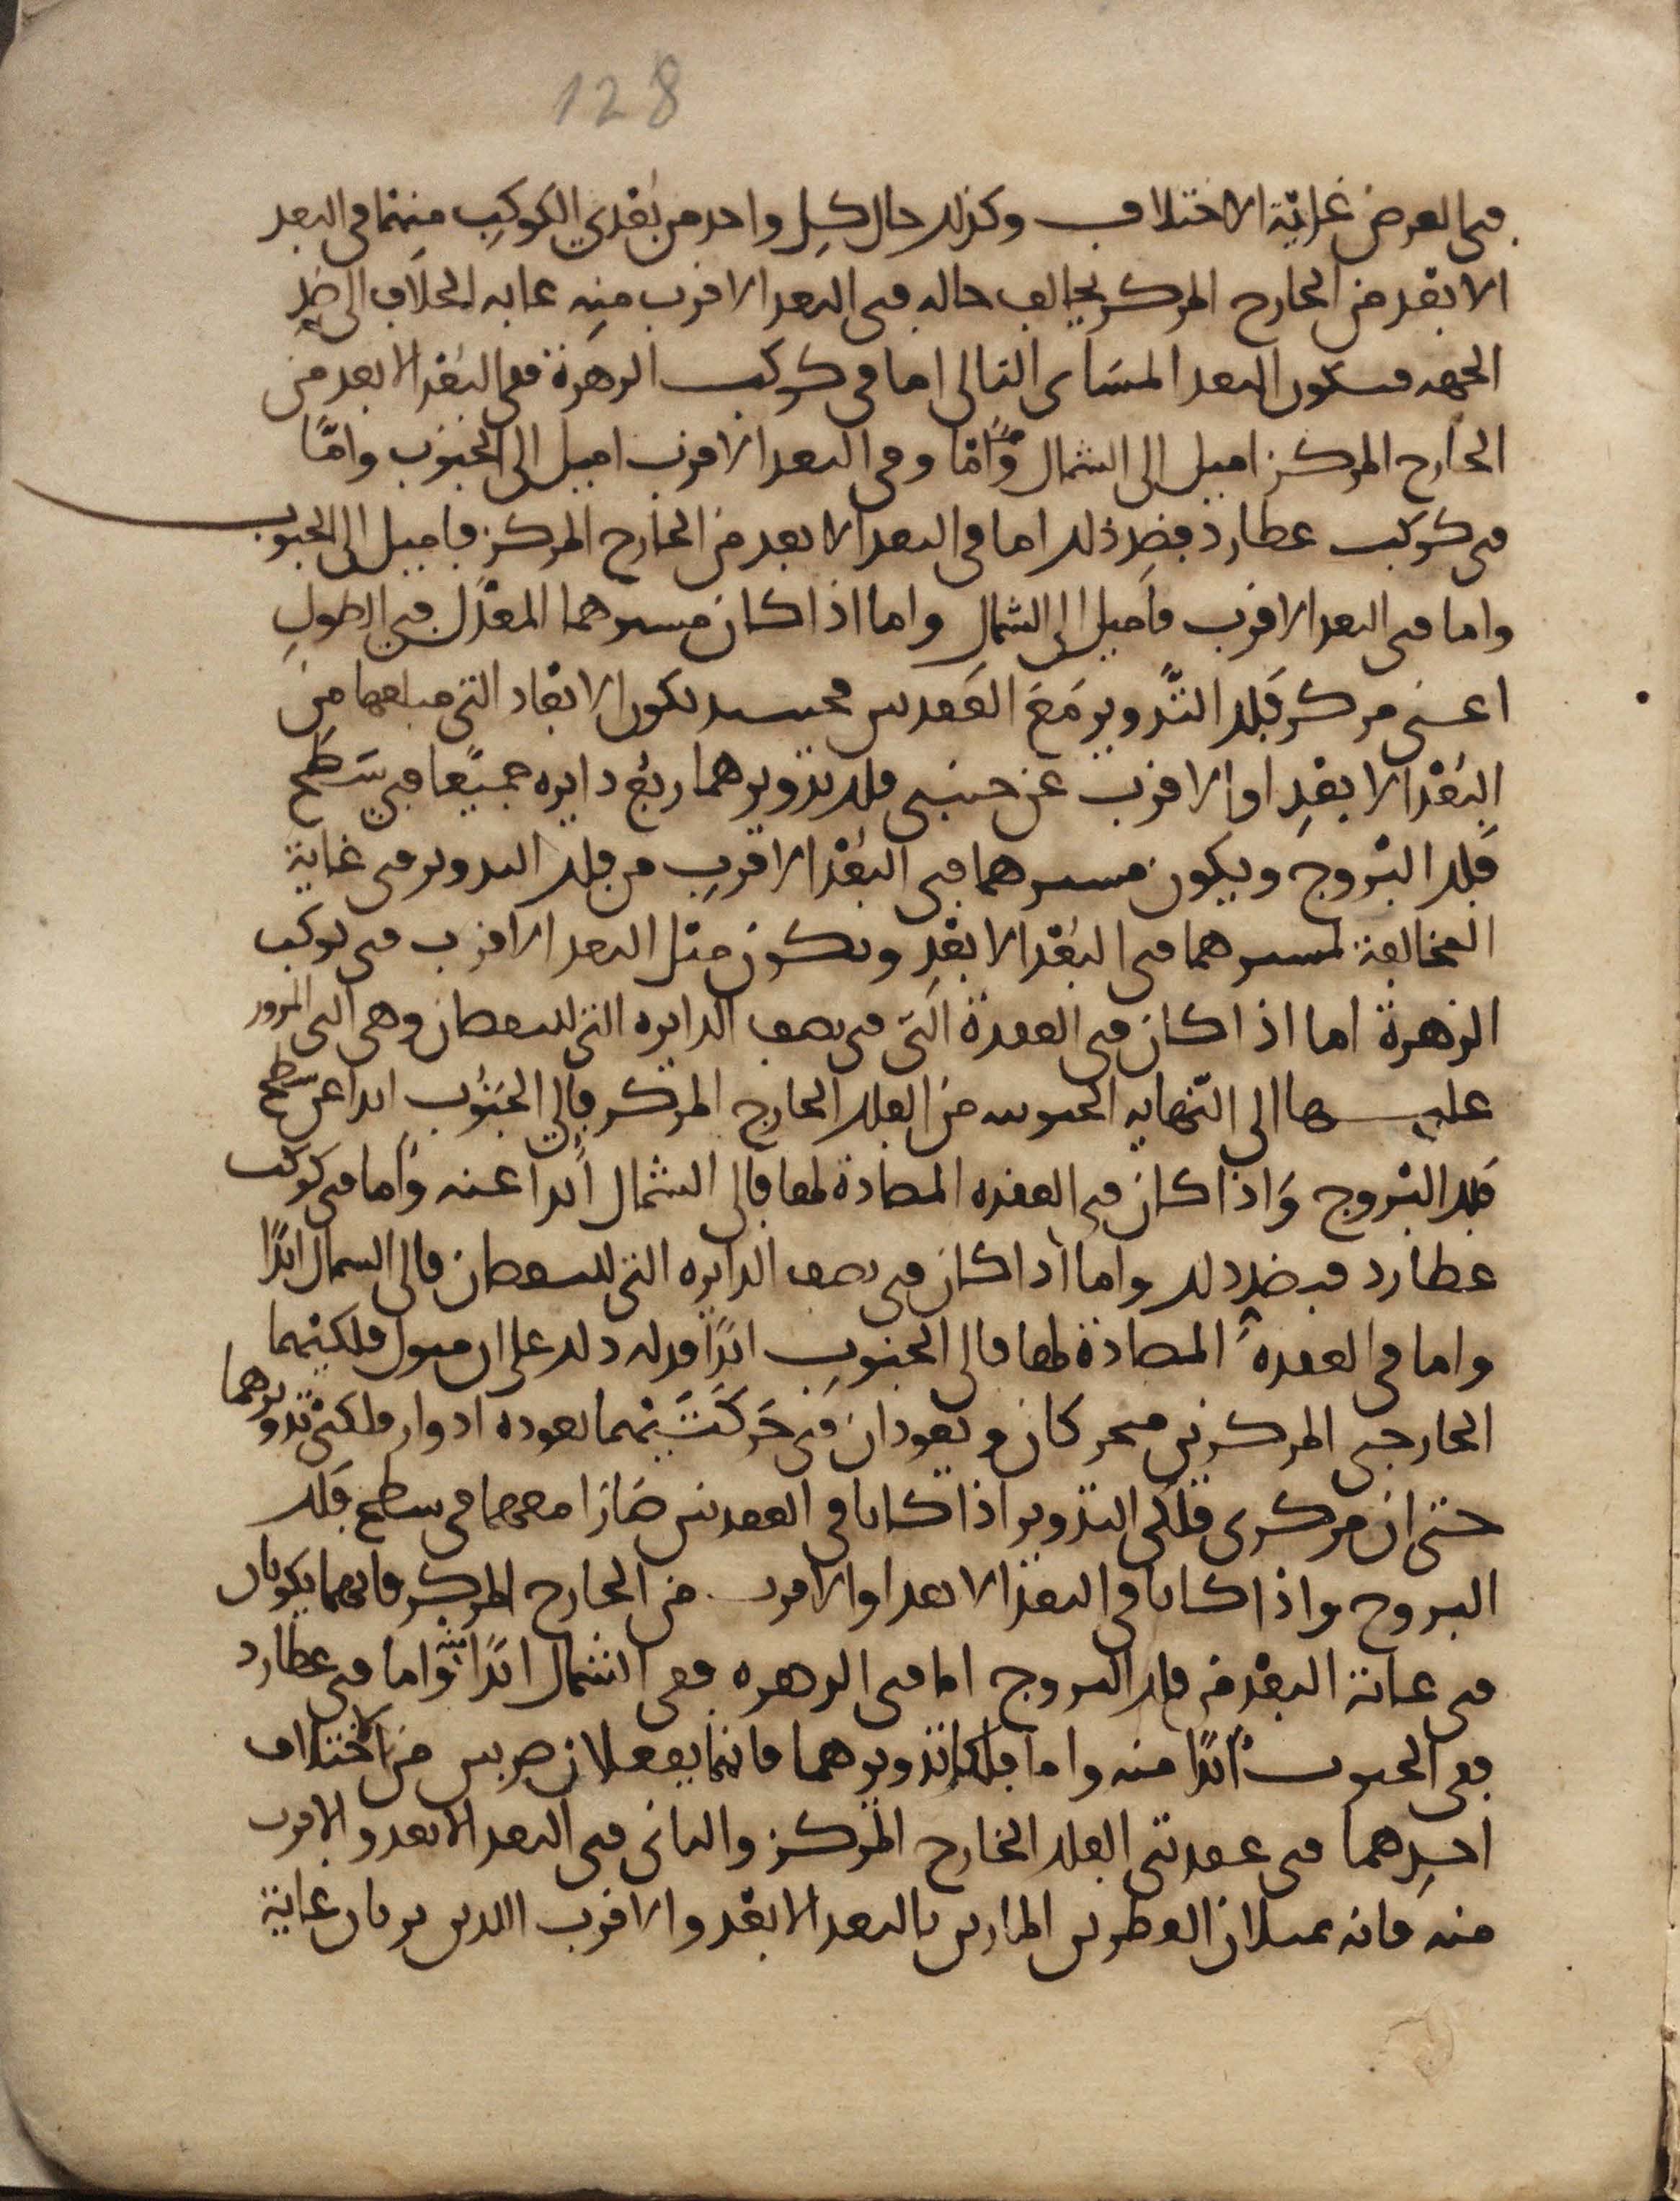 128
في العرض غاية الاختلاف وكذلك حال كل واحد من بعدي الكوكب منهما في البعد
الابعد من الخارج المركز يخالف حاله في البعد الاقرب منه غاية الخلاف الى ضد
الجهة فيكون البعد المسائ التالى اما في كوكب الزهرة ففي البعد الابعد من
الخارج المركز اميل الى الشمال واما وفي البعد الاقرب اميل الى الجنوب وامّا
في كوكب عطارد فبضد ذلك اما في البعد الابعد من الخارج المركز فاميل الى الجنوب
واما في البعد الاقرب فاميل الى الشمال واما اذا كان مسيرهما المعدّل في الطول
اعنى مركز فلك التّدوير مَعَ العقدتين فحينئذ يكون الابعاد التي مبلغها من
البُعْد الابعدِ او الاقرب عن جنبي فلك تدويرهما ربع دايره جميعًا في سَطح
فلك البروج ويكون مسيرهما في البُعْد الاقربِ من فلك التدوير في غاية
المخالفة لمسيرهما في البُعْد الابعدِ ويكون مثل البعد الاقرب في كوكب
الزهرة اما اذا كان في العقدة التي في نصف الدايره التي للنقصان وهي التي المرور
عليها الى النّهايه الجنوبيه من الفلك الخارج المركز فالى الجنُوب ابدا عن سطح
فلك البروج وَاذا كان في العقده المضادة لها فالى الشمال ابدا عنه واما في كوكب
عطارد فبضد ذلك واما اذا كان في نصف الدايره التي للنقصان فالى الشمال ابدًا
واما في العقدة المضادة لها فالى الجنوبِ ابدًا فدله ذلك على ان ميول فلكيهما
الخارجي المركزين متحركان ويعودان في حَركَتَيْهما بعوده ادوار فلكى تدويرهما
حتى ان مركزى فلكى التدوير اذا كانا في العقدتين صَارَا معهما في سطح فلك
البروج واذا كانا في البعد الابعد او الاقرب من الخارج المركز فانهما يكونان
في غاية البعد من فلك البروج اما في الزهره ففي الشمال ابدًا منه واما في عطارد
ففي الجنوب ابدًا منه واما فلكا تدويرهما فانهما يفعلان ضربين من الاختلاف
احدهما في عقدتي الفلك الخارج المركز والثاني في البعد الابعد والاقرب
منه فانه يميلان القطرين المارين بالبعد الابعد والاقرب اللذين يريان غاية